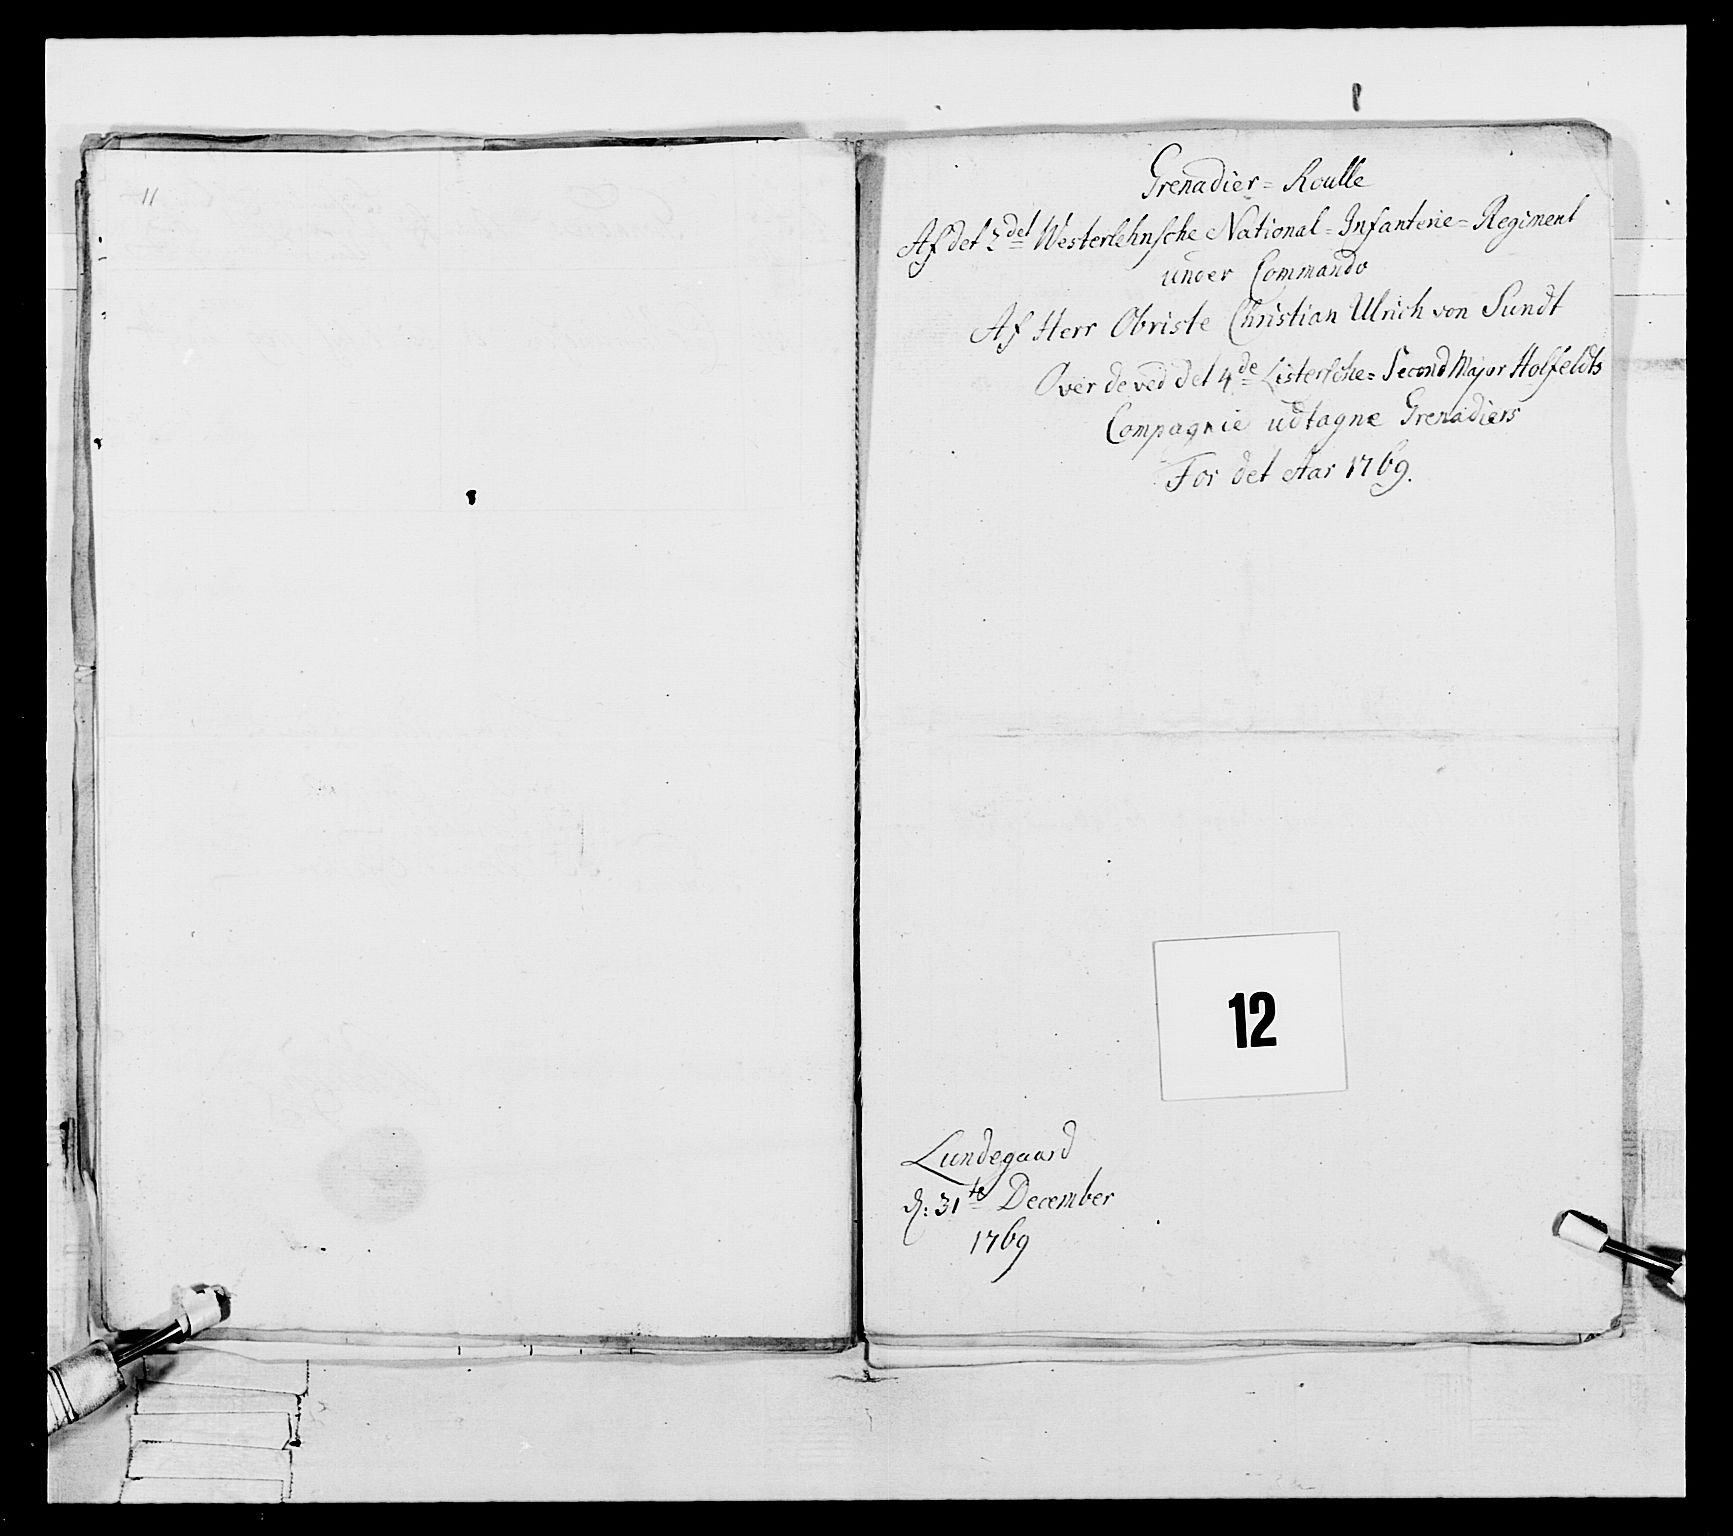 Grenadier = Roulle
Af det 2det Westerlehnsche National = Infanterie = Regiment
under Commando
Af Herr Obriste Christian Ulrich von Sundt
Over de ved det 4de Listersche = Second Major Holfeldts
Compagnie udtagne Grenadiers
For det Aar 1769.
12
Lundegaard
d: 31te December
1769